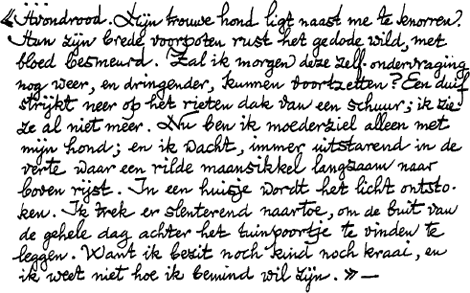 « Avondrood. Mijn trouwe hond ligt naast me te knorren.
Aan zijn brede voorpoten rust het gedode wild, met
bloed besmeurd. Zal ik morgen deze zelf-ondervraging
nog weer, en dringender, kunnen voortzetten? Een duif
strijkt neer op het rieten dak van een schuur; ik zie
ze al niet meer. Nu ben ik moederziel alleen met
mijn hond; en ik wacht, immer uitstarend in de
verte waar een rilde maansikkel langzaam naar
boven rijst. In een huisje wordt het licht ontsto-
ken. Ik trek er slenterend naartoe, om de buit van
de gehele dag achter het tuinpoortje te vinden te
leggen. Want ik bezit noch kind noch kraai, en
ik weet niet hoe ik bemind wil zijn. » —